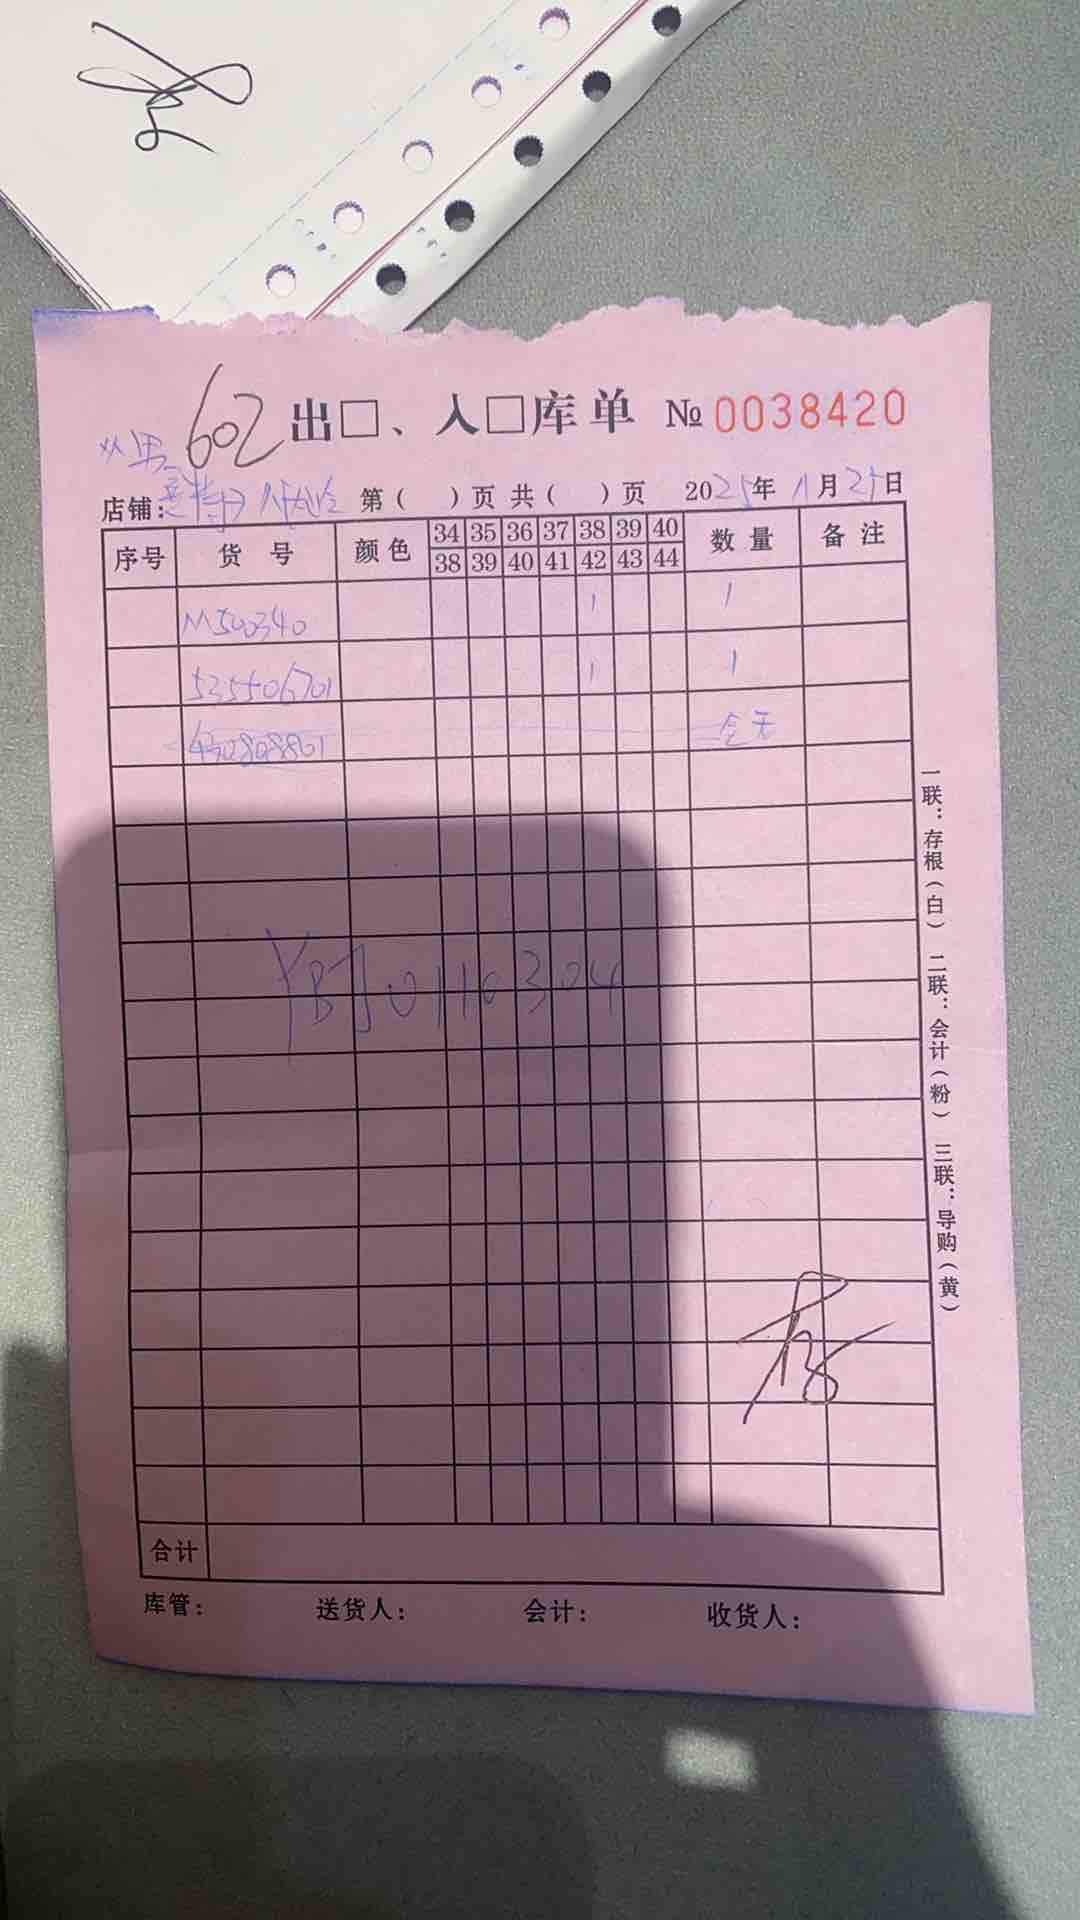 602 出□、入□库单 № 0038420
店铺: 第（ ）页 共（ ）页 2025年11月25日
序号 货号 颜色 34 35 36 37 38 39 40 数量 备注
38 39 40 41 42 43 44
M500340 1 1
535506701 1 1
4302808801
YBJ0110304
合计
库管: 送货人: 会计: 收货人:
一联：存根（白） 二联：会计（粉） 三联：导购（黄）